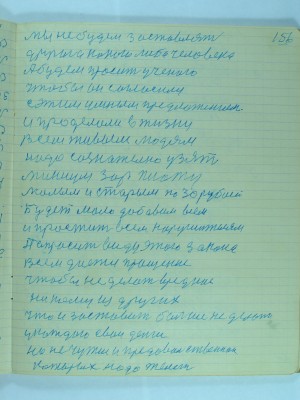 156
мы не будем заставлять
другого какого либо человека
А будем просит ученого
чтобы он согласился
с этим умным предложением
и проделали в жизни
всем живым людям
надо сознательно узять
минимум зар плоту
малым и старым по 30 рублей
Будет мало добавим всем
и простит всем нарушителям
Попросит виду этого закона
всем дието прощение
чтобы не делат вредние
ни кому из других
что и заставит больше не делать
у каждого свои деньги
но не чужие и
которих надо